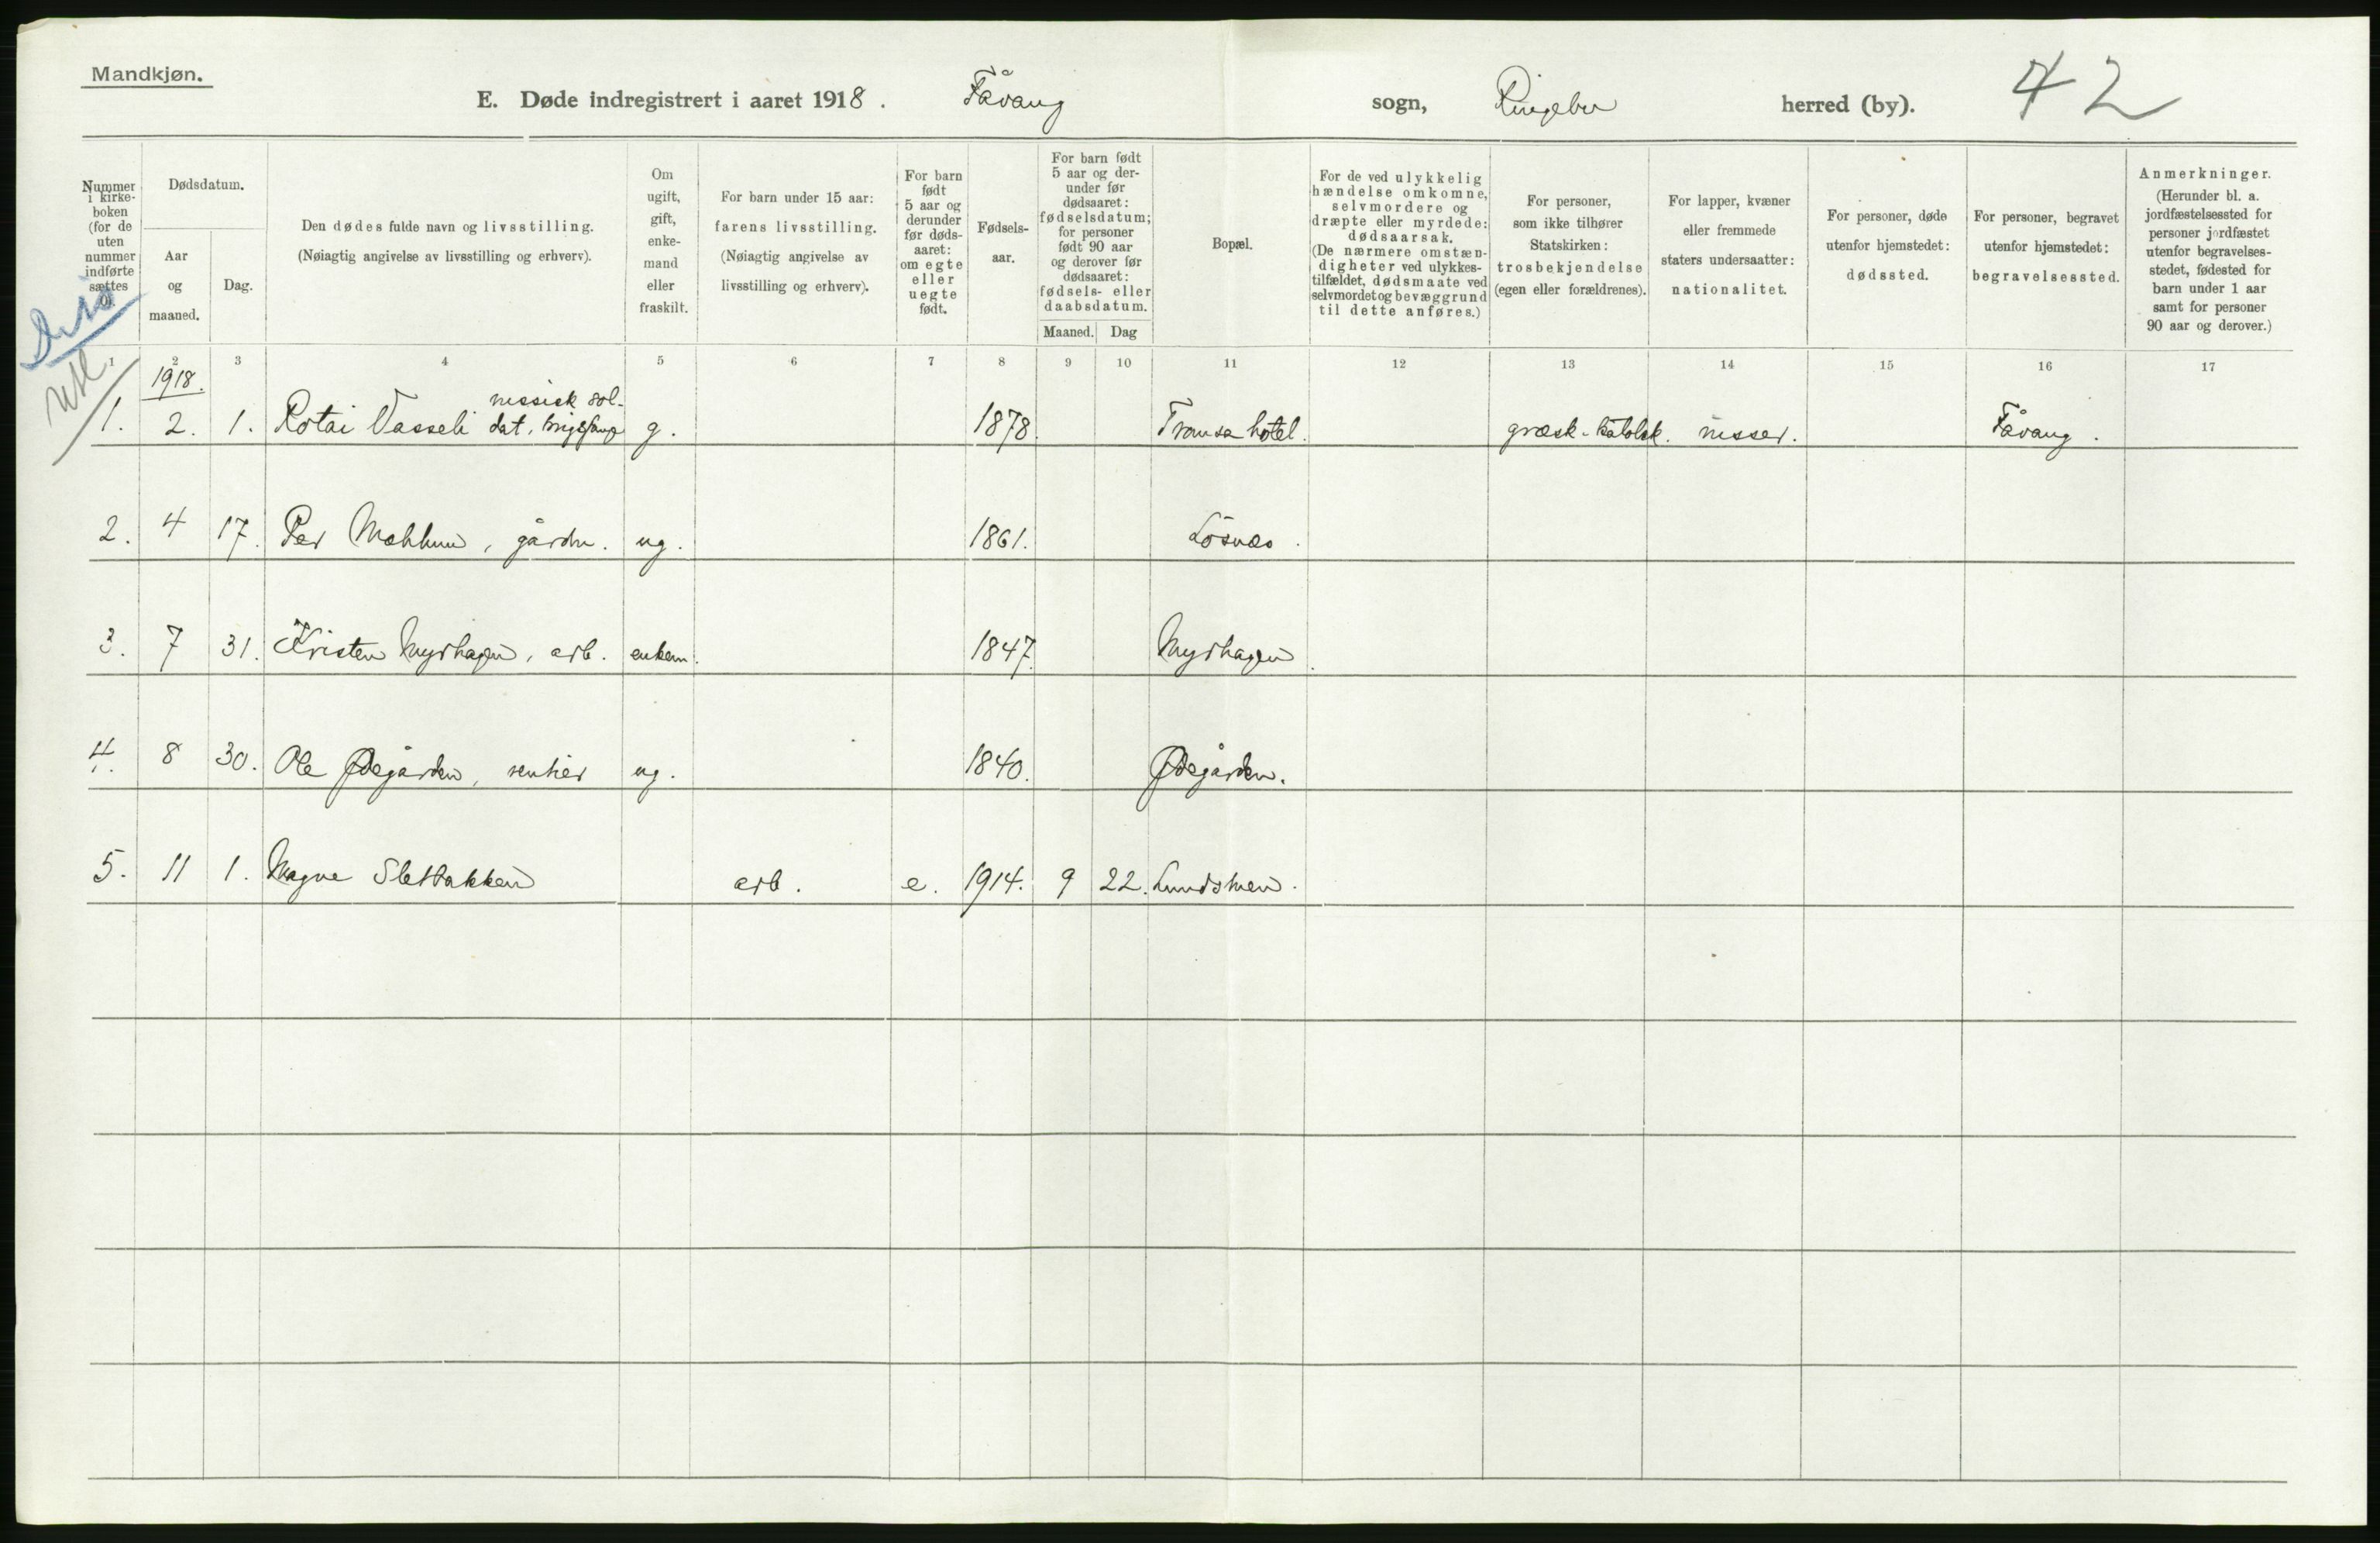 Mandkjøn.
E. Døde indregistrert i aaret 1918. Fåvang sogn, Ringebu herred (by). 42
Nummer i kirke-boken (for de uten nummer indførte sættes 0).
Dødsdatum.
Aar og maaned.
Dag.
Den dødes fulde navn og livsstilling.
(Nøiagtig angivelse av livsstilling og erhverv).
Om ugift, gift, enke-mand eller fraskilt.
For barn under 15 aar: farens livsstilling.
(Nøiagtig angivelse av livsstilling og erhverv).
For barn født 5 aar og derunder før døds-aaret: om egte eller uegte født.
Fødsels-aar.
For barn født 5 aar og der-under før dødsaaret: fødselsdatum; for personer født 90 aar og derover før dødsaaret: fødsels- eller daabsdatum.
Maaned. Dag
Bopæl.
For de ved ulykkelig hændelse omkomne, selvmordere og dræpte eller myrdede: dødsaarsak.
(De nærmere omstæn-digheter ved ulykkes-tilfældet, dødsmaate ved selvmordet og bevæggrund til dette anføres.)
For personer, som ikke tilhører Statskirken: trosbekjendelse (egen eller forældrenes).
For lapper, kvæner eller fremmede staters undersaatter: nationalitet.
For personer, døde utenfor hjemstedet: dødssted.
For personer, begravet utenfor hjemstedet: begravelsessted.
Anmerkninger.
(Herunder bl. a. jordfæstelsessted for personer jordfæstet utenfor begravelses-stedet, fødested for barn under 1 aar samt for personer 90 aar og derover.)
1 2 3 4 5 6 7 8 9 10 11 12 13 14 15 16 17
1918.
russisk sol-
1. 2. 1. Rotai Vasseli dat, krigsfange g. 1878. Tromsa hotel. græsk-katolsk. russer. Fåvang.
2. 4 17. Per, gårdbr. ug. 1861. Lösnæs.
3. 7 31. Kristen Myrhagen, arb. enkem. 1847. Myrhagen.
4. 8 30. Ole Ødegården, rentier ug. 1840. Ødegården.
5. 11 1. Magne Sletbakken arb. e. 1914. 9 22. Lundsmoen.